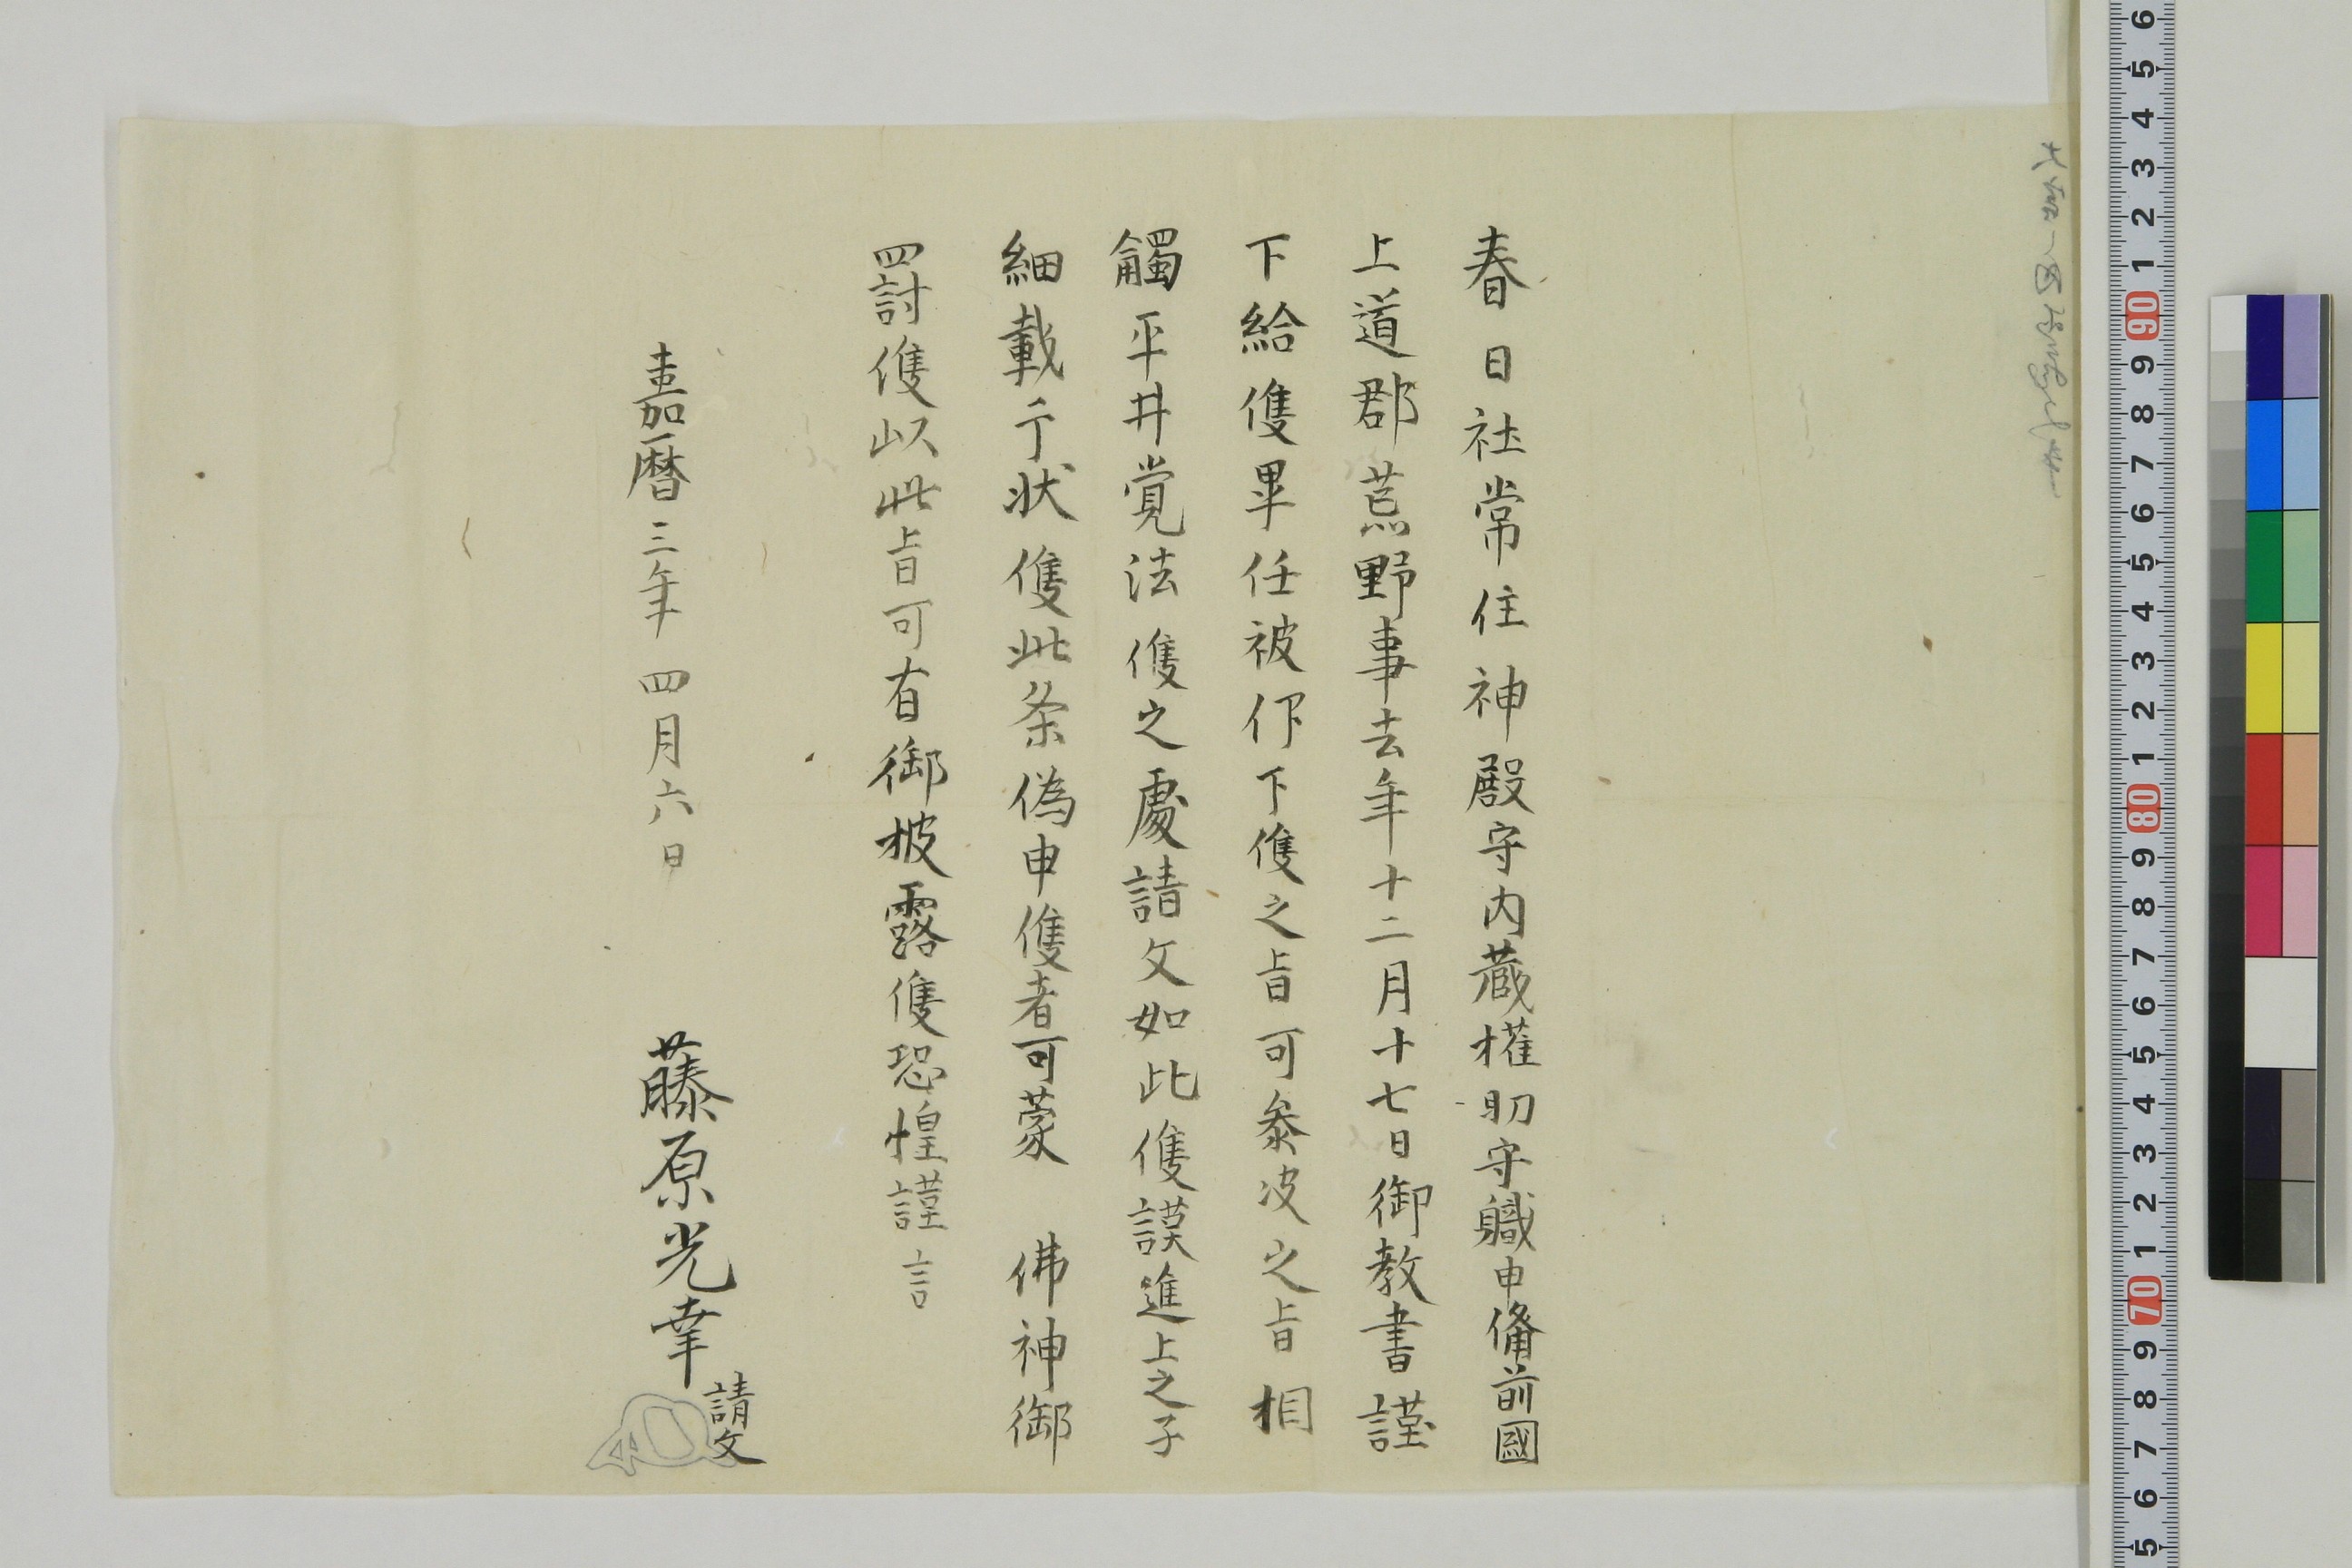 春日社常住神殿守内蔵権助守職申備前國
上道郡荒野事去年十二月十七日御教書謹
下給候畢任被仰下候之旨可参決之旨相
觸平井覚法候之處請文如此候謹進上之子
細載于状候此条偽申候者可蒙　佛神御
罰候以此旨可有御披露候恐惶謹言
嘉暦三年四月六日
藤原光幸請文